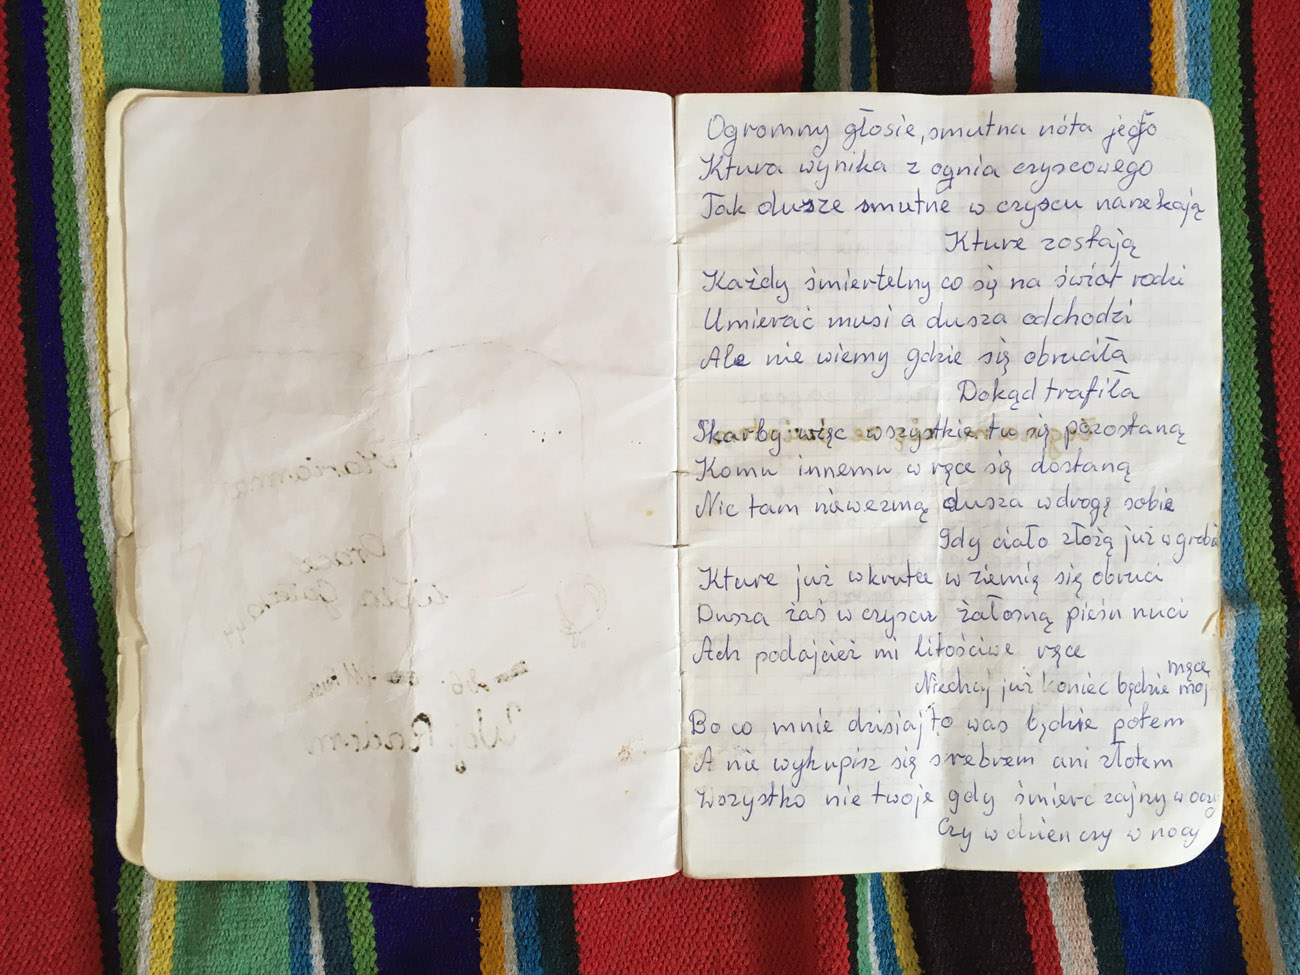 Ogromny głosie, smutna nóta jego
Ktura wynika z ognia czyscowego
Tak dusze smutne w czyscu narekają
Kture zostają
Każdy śmiertelny co się na świat rodzi
Umierać musi a dusza odchodzi
Ale nie wiemy gdzie się obruciła
Dokąd trafiła
Skarby więc wszystkie tu się pozostaną
Komu innemu w ręce się dostaną
Nic tam niewezmą dusza wdrogę sobie
Gdy ciało złożą już w grobie
Kture już wkrutce w ziemię się obruci
Dusza zaś w czyscu żałosną pieśn nuci
Ach podajcież mi litościwe ręce
Niechaj już koniec będzie moj
męce
Bo co mnie dzisiaj to was będzie potem
A nie wykupisz się srebrem ani złotem
Wszystko nie twoje gdy śmierc zajrzy w oczy
Czy w dzien czy w nocy
Marianna